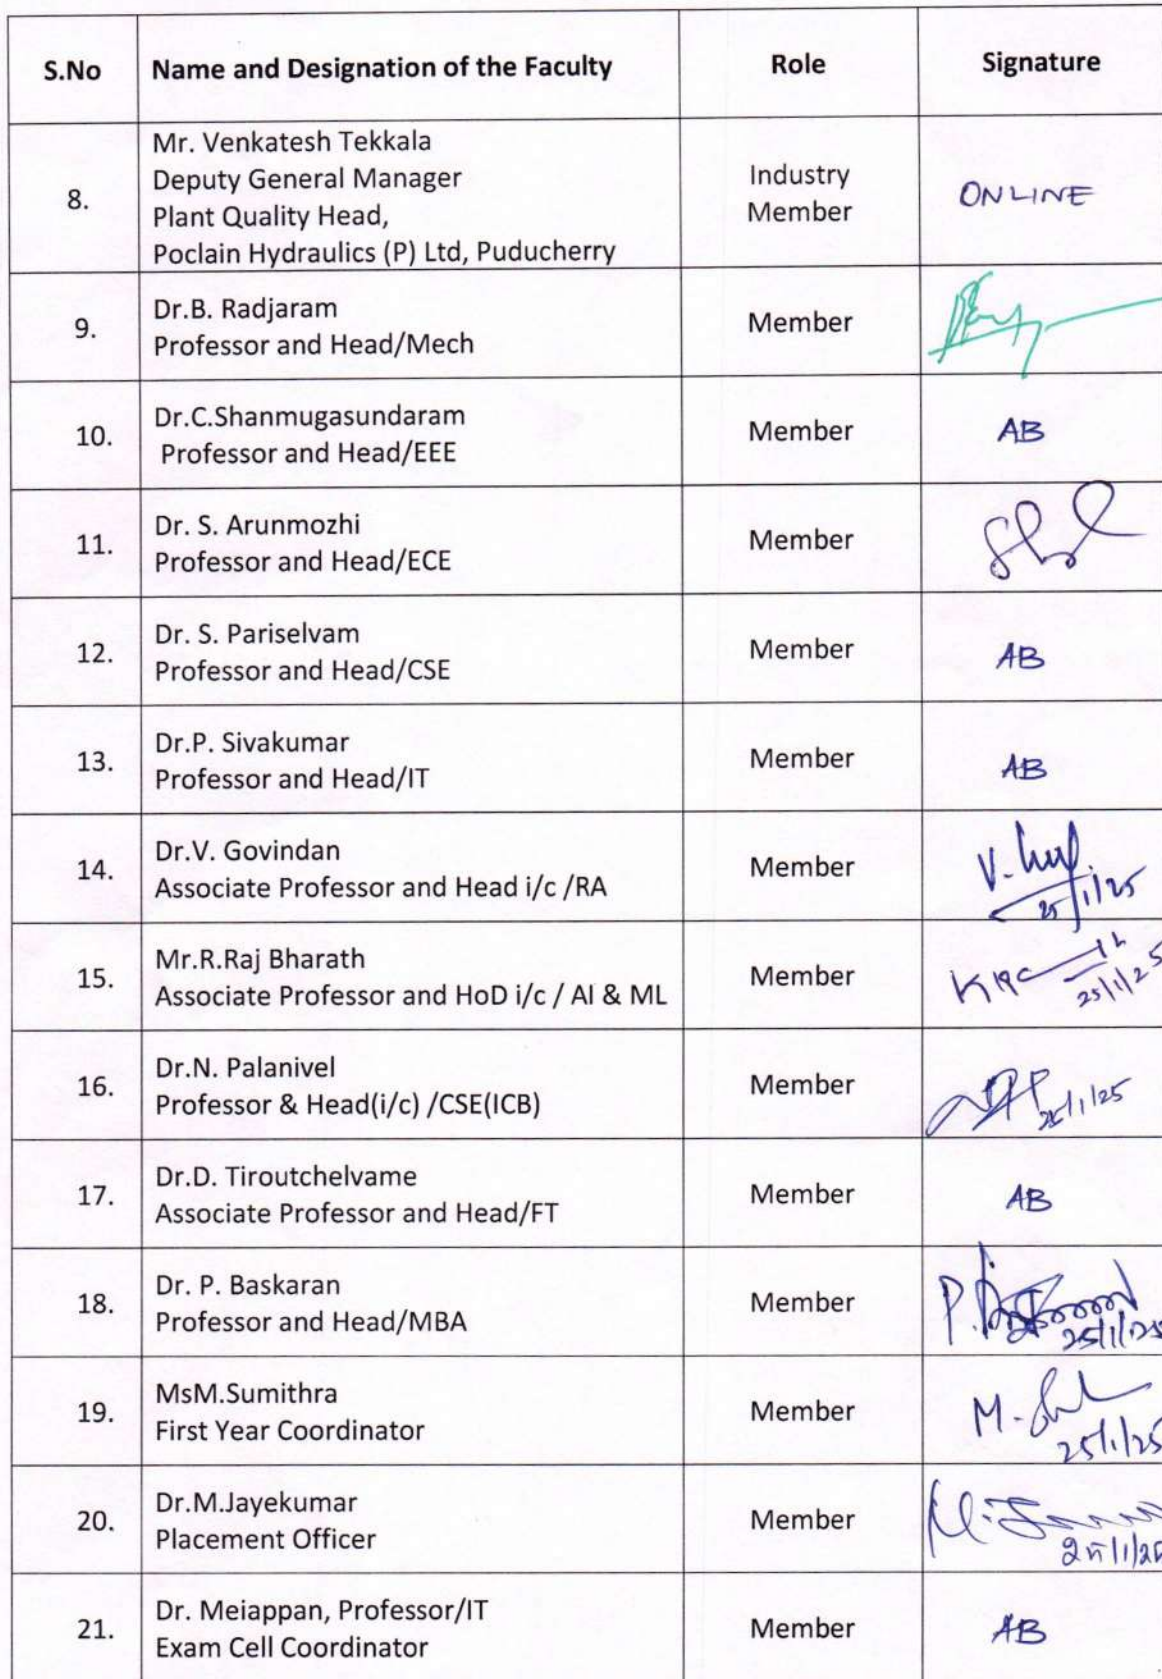 S.No Name and Designation of the Faculty Role Signature
8. Mr. Venkatesh Tekkala
Deputy General Manager
Plant Quality Head,
Poclain Hydraulics (P) Ltd, Puducherry
Industry
Member
ONLINE
9. Dr.B. Radjaram
Professor and Head/Mech
Member
10. Dr.C.Shanmugasundaram
Professor and Head/EEE
Member
AB
11. Dr. S. Arunmozhi
Professor and Head/ECE
Member
12. Dr. S. Pariselvam
Professor and Head/CSE
Member
AB
13. Dr.P. Sivakumar
Professor and Head/IT
Member
AB
14. Dr.V. Govindan
Associate Professor and Head i/c /RA
Member
V.
25/1/25
15. Mr.R.Raj Bharath
Associate Professor and HoD i/c / AI & ML
Member
25/1/25
16. Dr.N. Palanivel
Professor & Head(i/c) /CSE(ICB)
Member
25/1/25
17. Dr.D. Tiroutchelvame
Associate Professor and Head/FT
Member
AB
18. Dr. P. Baskaran
Professor and Head/MBA
Member
P.
25/1/25
19. MsM.Sumithra
First Year Coordinator
Member
M.
25/1/25
20. Dr.M.Jayekumar
Placement Officer
Member
25/1/25
21. Dr. Meiappan, Professor/IT
Exam Cell Coordinator
Member
AB